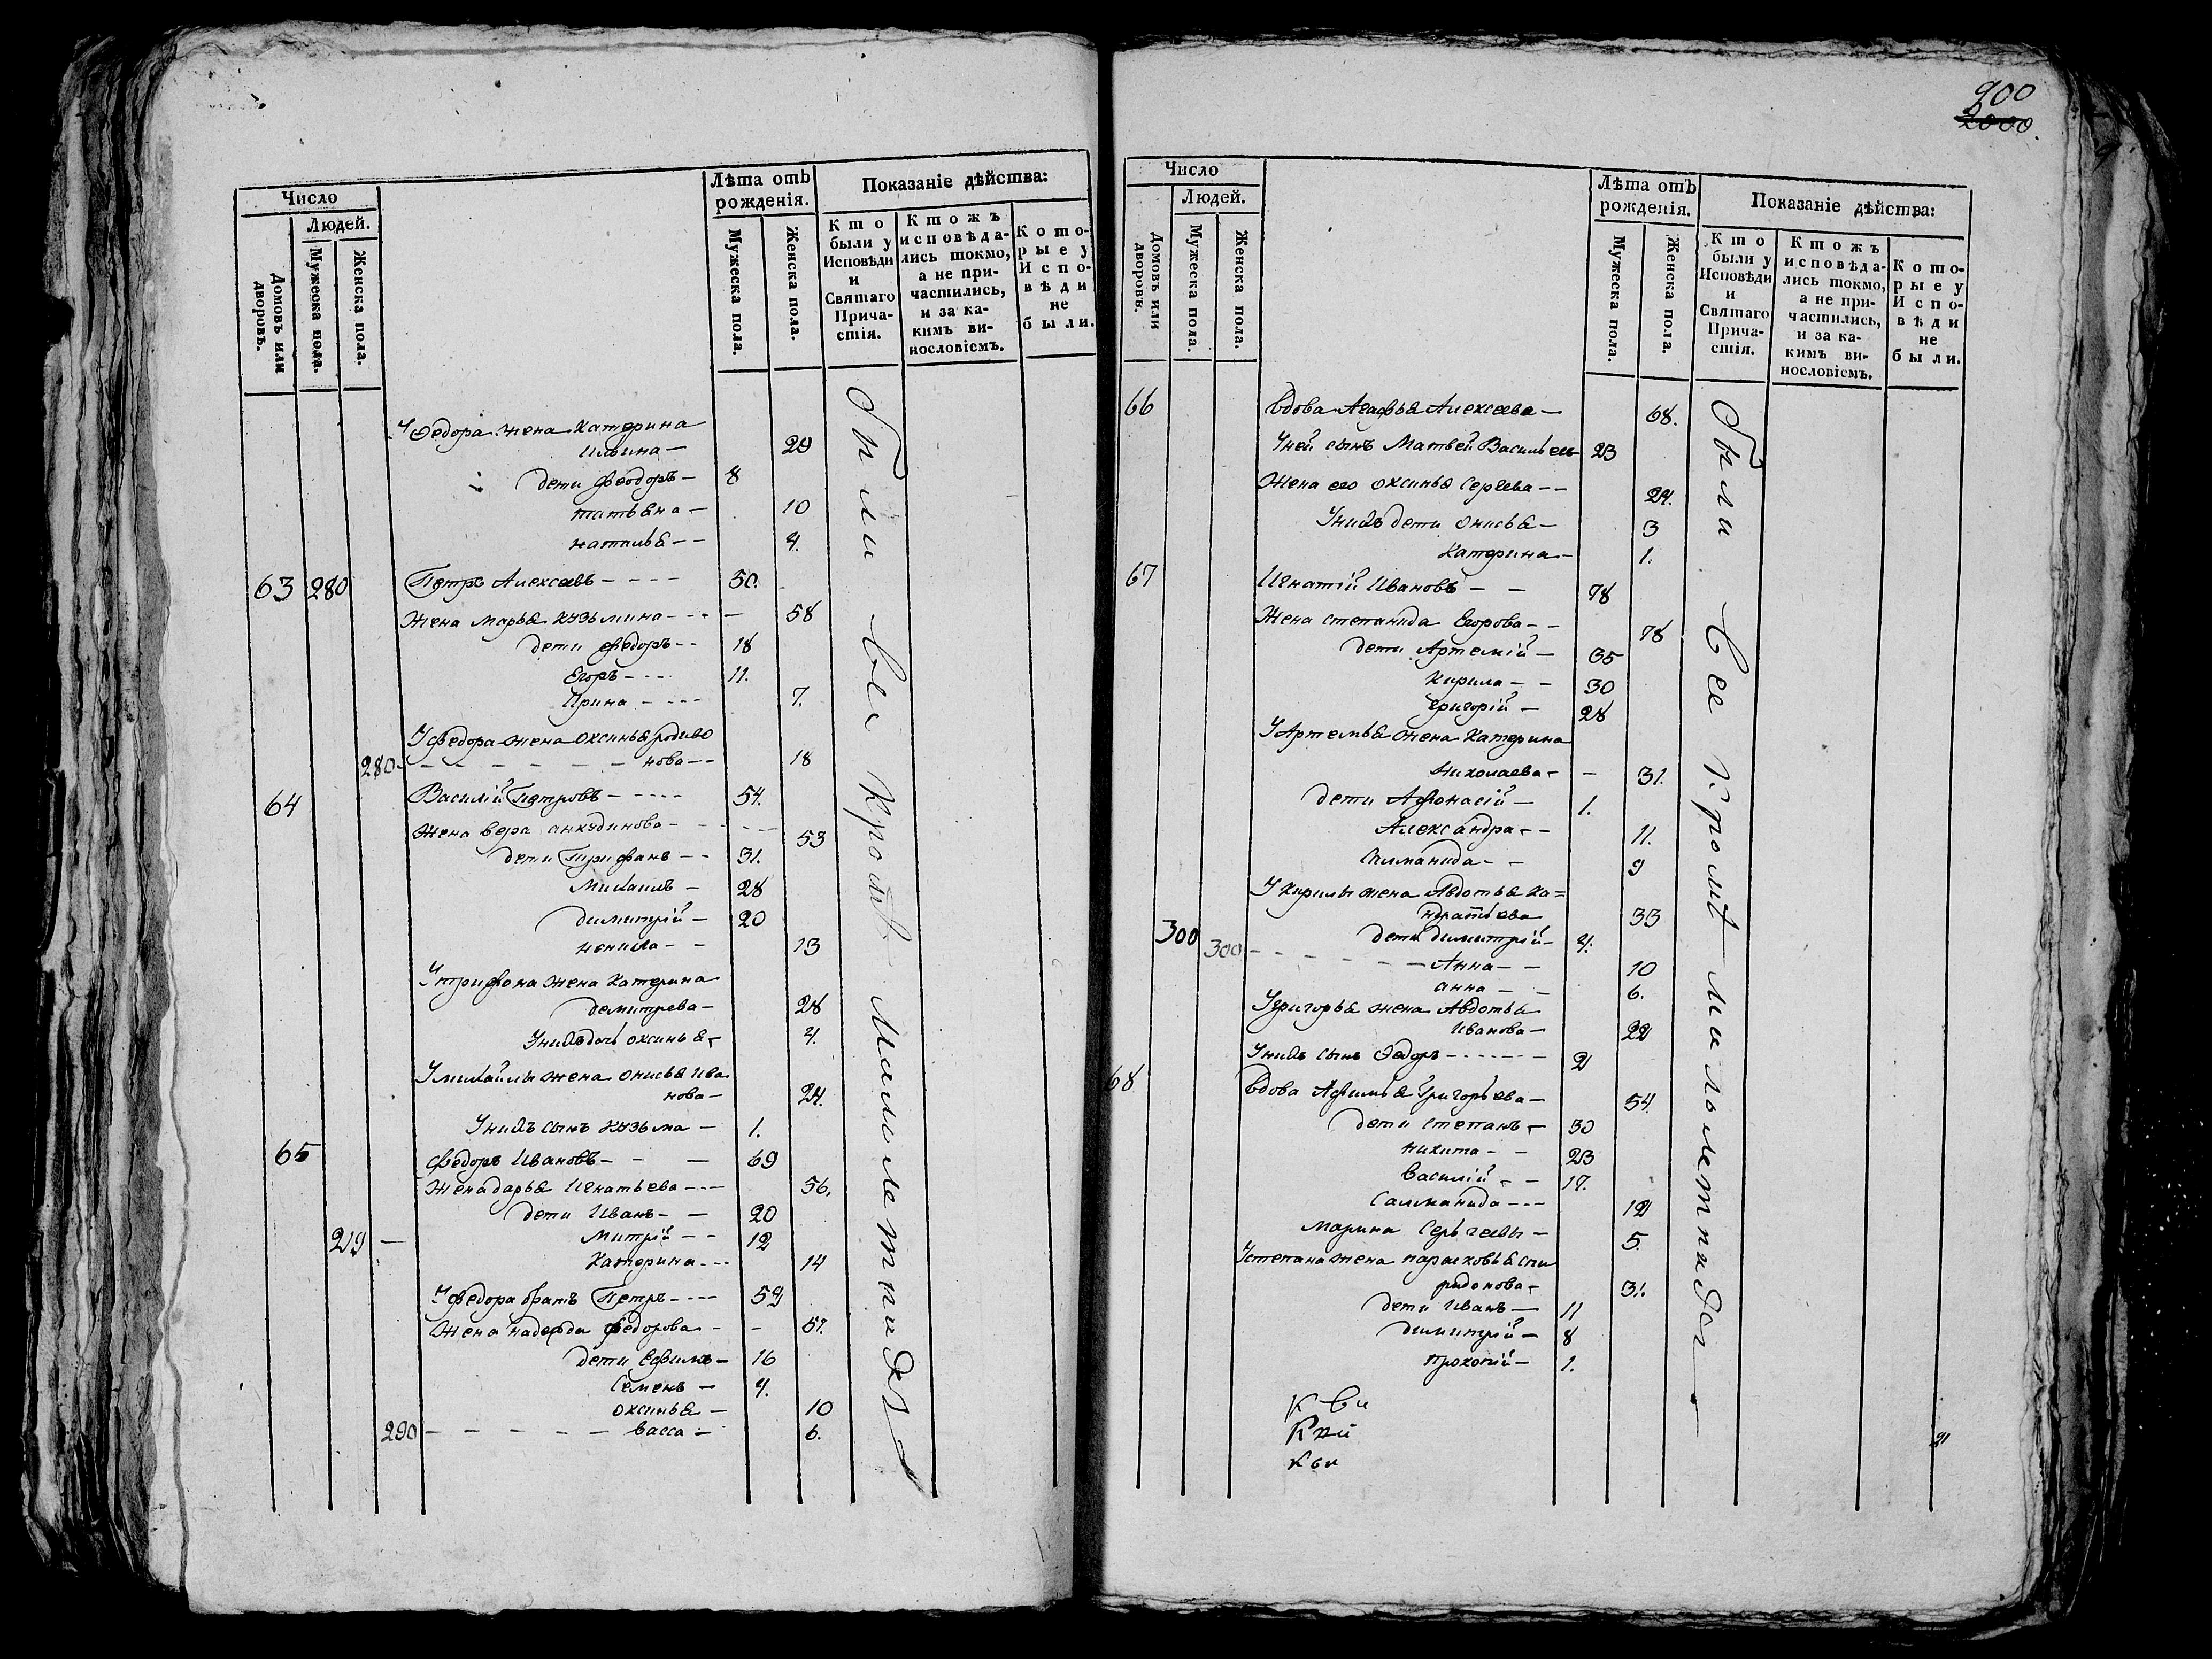 Число
Людей.
Домовъ или дворовъ.
Мужеска пола.
Женска пола.
Лѣта отъ рожденія.
Мужеска пола.
Женска пола.
Показаніе дѣйства:
Кто были у Исповѣди и Святаго Причастія.
Ктожъ исповѣдались токмо, а не причастились, и за какимъ винословіемъ.
Которые у Исповѣди не были.
У Федора жена Катерина
Ильина — 29
дети Феодоръ — 8
татьяна — 10
наталья — — 4.
63 280 Петръ Алексеевъ — — — — 50.
Жена марья кузьмина — — — — 58
дети федоръ — — 18
Егоръ — — — 11.
Ирина — — — — 7.
У федора жена оксинья родиво
280 — — — — — — нова — — 18
64 Василій Петровъ — — — — 54.
Жена вера анкудинова — — — — 53
дети Трифанъ — — 31.
Михаилъ — 28
димитрій — 20
ненила — — 13
У трифона жена катерина
демитрева — 28
У нихъ дочь оксинья — 4.
У михайлы жена онисья ива
нова — 24.
У нихъ сынъ кузьма — 1.
65 федоръ Ивановъ — — — 69
Жена дарья Игнатьева — — — 56.
дети Иванъ — — 20
219 — Митрій — — 12
Катерина — — — 14
У федора братъ Петръ — — — 52
Жена надежда федорова — — 57.
дети Ефимъ — 16
Семенъ — 4.
оксинья — 10
290 — — — — — васса — 6.
были все кромѣ малолетнихъ
900
2000.
Число
Людей.
Домовъ или дворовъ.
Мужеска пола.
Женска пола.
Лѣта отъ рожденія.
Мужеска пола.
Женска пола.
Показаніе дѣйства:
Кто были у Исповѣди и Святаго Причастія.
Ктожъ исповѣдались токмо, а не причастились, и за какимъ винословіемъ.
Которые у Исповѣди не были.
66 вдова Агафья Алексеева — 68.
У ней сынъ Матвей Васильевъ 23
Жена его оксинья Сергеева — — 24.
У нихъ дети онисья — 3
Катерина — 1.
67 Игнатій Ивановъ — — 78
Жена степанида Егорова — — 78
дети Артемій — 35
Кирила — — 30
Григорій — 28
У Артемья жена Катерина
Николаева — — 31.
дети Афонасій — 1.
Александра — — 11.
9
У Кирилы жена Авдотья ка=
ндратьева 33
300 дети димитрій — 4.
300 — — — — — — Анна — — 10
анна — — 6.
У Григорья жена Авдотья
Иванова — 22
У нихъ сынъ Федоръ — — — — — 2
68 вдова Афимья Григорьева — 54.
дети степанъ — 30
никита — — 23
Василій — — 17.
12
Марина Сергеевы — 5.
У степана жена парасковья спи
ридонова — 31.
дети Иванъ — 11
димитрій — 8
прокопій — 1.
были все кромѣ малолетнихъ